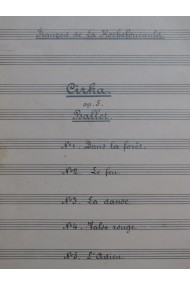 François de la Rochefoucauld.
Cirka.
op. 5.
Ballet.
N°1. Dans la forêt.
N°2. Le feu.
N°3. La danse.
N°4. Valse rouge.
N°5. L'Adieu.